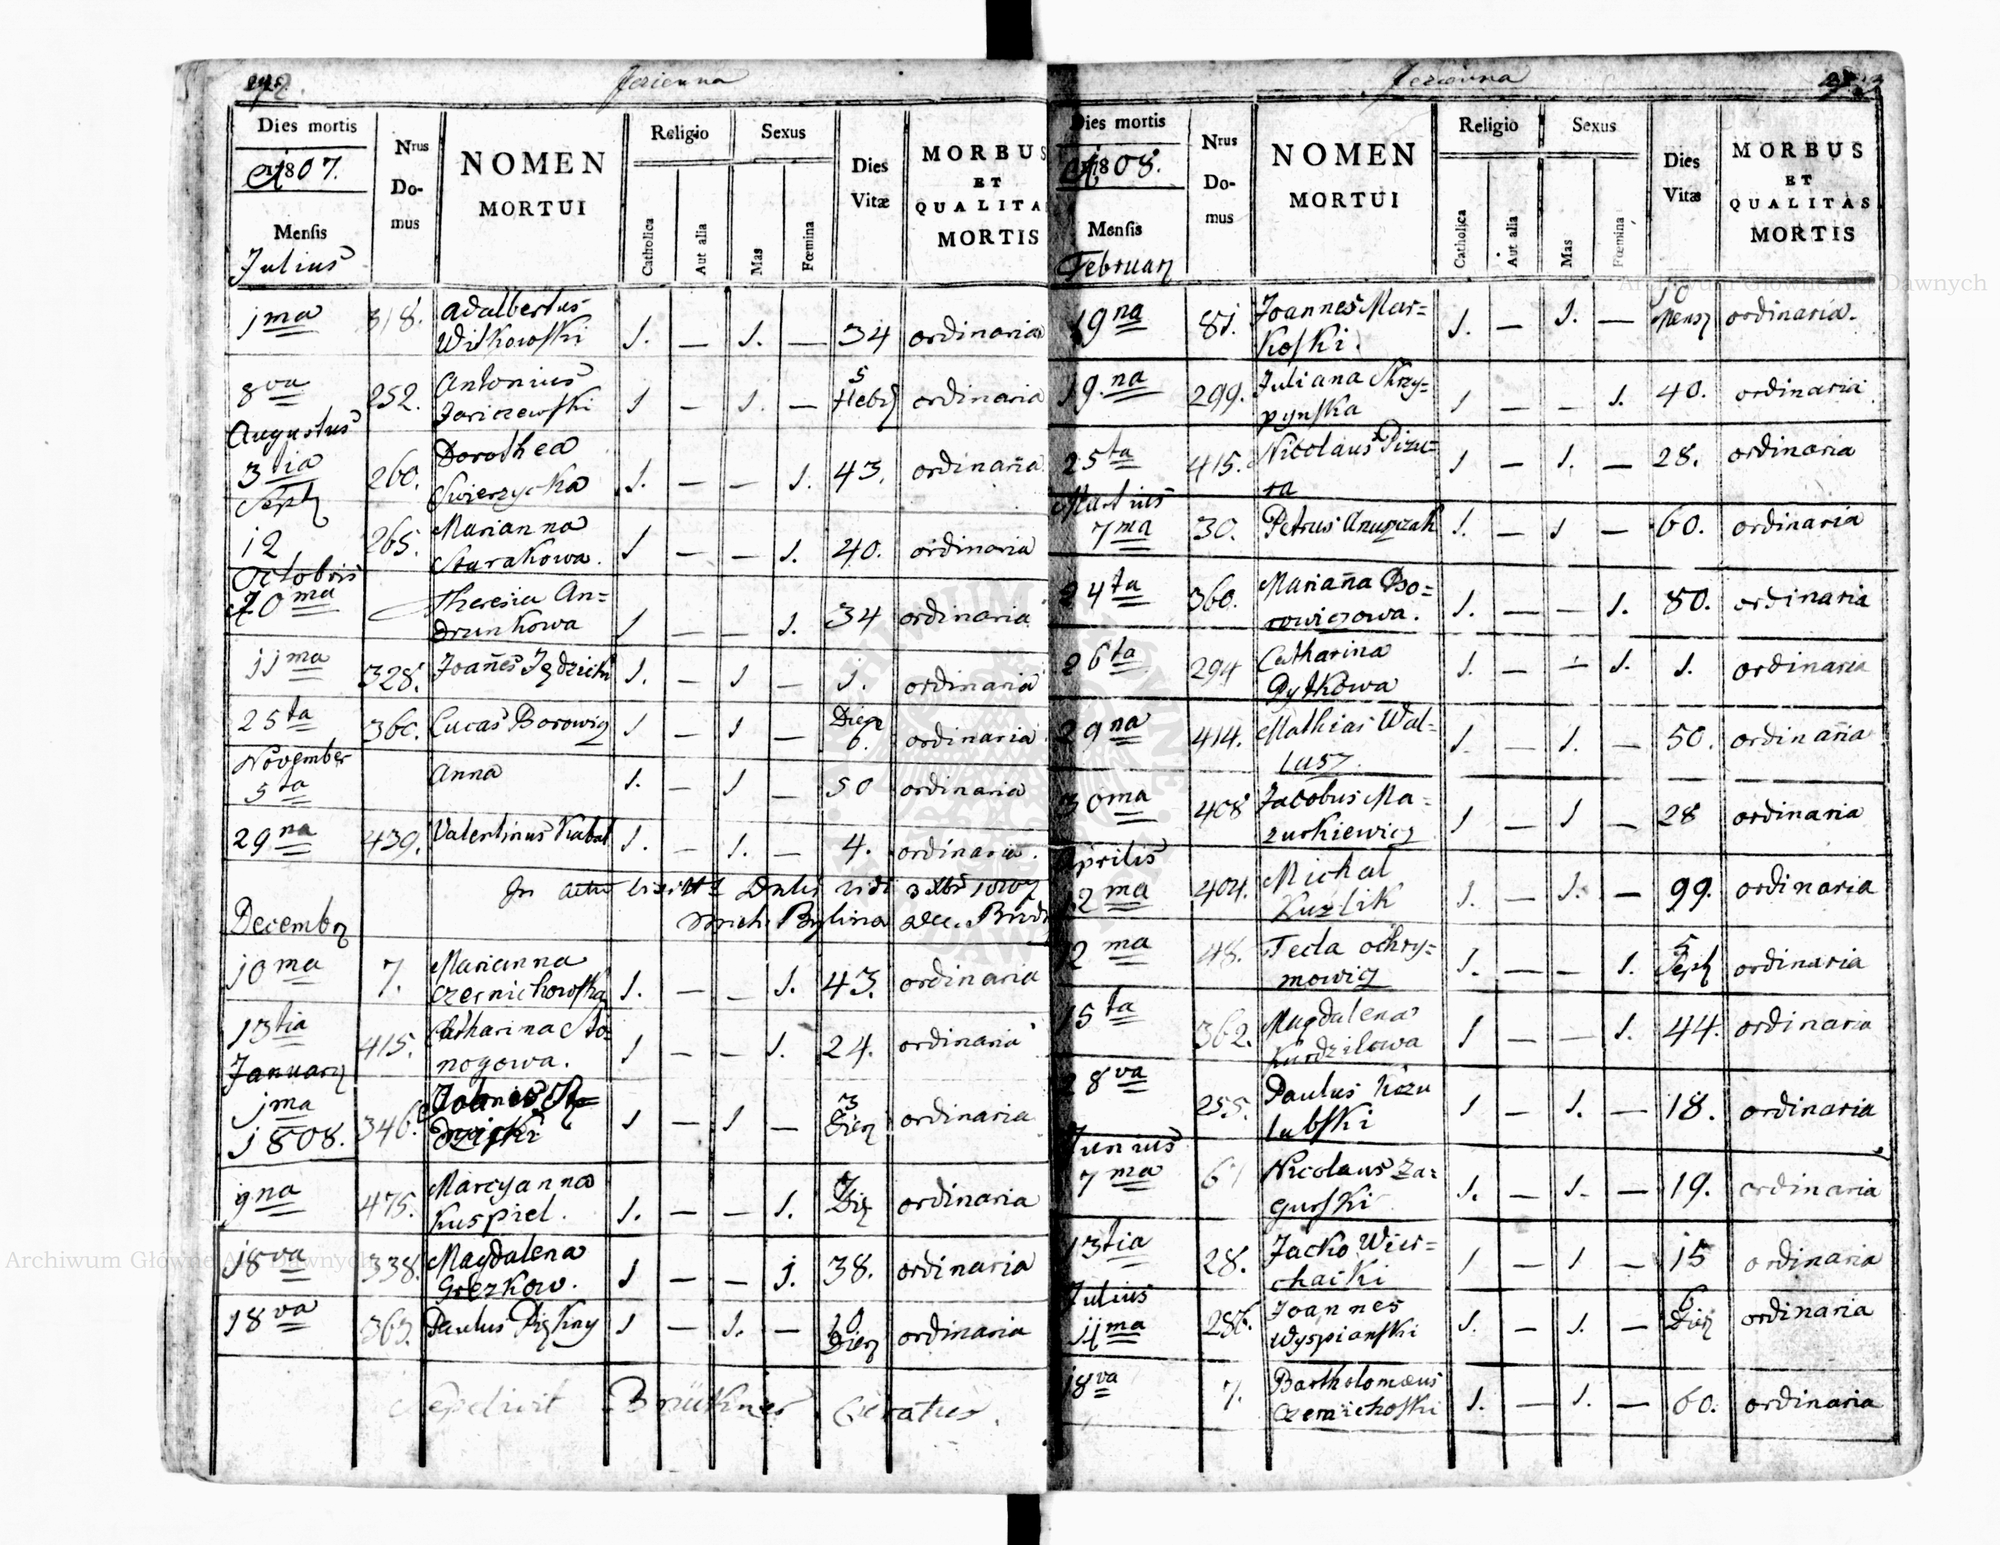 Jezierna
Dies mortis
1807.
Mensis
Julius
Nrus
Do-
mus
NOMEN
MORTUI
Religio
Catholica
Aut alia
Sexus
Mas
Fœmina
Dies
Vitæ
MORBUS
ET
QUALITA
MORTIS
1ma 318. Adalbertus
Witkowski 1. — 1. — 34 ordinaria
8va 252. Antonius
Jariczewski 1 — 1. — 5 Hebd ordinaria
Augustus
3tia 260. Dorothea
Swierzycka 1. — — 1. 43. ordinaria
Septr
12 265. Marianna
Starakowa. 1 — — 1. 40. ordinaria
Octobris
20ma — Theresia An=
drunkowa 1 — — 1. 34 ordinaria
11ma 328. Joañes 1. — 1 — 1. ordinaria
25ta 360. Lucas Borowicz 1 — 1 — Dier 6. ordinaria
November
5ta Anna 1. — 1 — 50 ordinaria
29na 439. Valentinus Kabat 1. — 1. — 4. ordinaria.
In
Bylina
Decembr
10ma 7. Marianna
Czernichowska 1. — — 1. 43. ordinaria
13tia 415. Catharina Sto=
nogowa. 1 — — 1. 24. ordinaria
Januarz
1ma
1808. 346. 1 — 1 — 3 Dier ordinaria
9na 475. Marcyanna
Kuspiel. 1. — — 1. 7 Dier ordinaria
18va 338. Magdalena
Gorzkow. 1 — — 1. 38. ordinaria
18va 363. Paulus Piękny 1 — 1. — 10 Dier ordinaria
Sepelivit Brückner Curatus.
Jezierna
Dies mortis
1808.
Mensis
Februarz
Nrus
Do-
mus
NOMEN
MORTUI
Religio
Catholica
Aut alia
Sexus
Mas
Fœmina
Dies
Vitæ
MORBUS
ET
QUALITAS
MORTIS
19na 81. Joannes Mar=
koski. 1. — 1. — 10 Mens ordinaria.
19.na 299. Juliana Skrzy=
pynska 1 — — 1. 40. ordinaria
25ta 415. Nicolaus Pizu=
ra 1 — 1. — 28. ordinaria
Martius
7ma 30. Petrus 1. — 1 — 60. ordinaria
24ta 360. Mariaña Bo=
rowiczowa. 1. — — 1. 80. ordinaria
26ta 294 Catharina
Pytkowa 1. — — 1. 1. ordinaria
29na 414. Mathias Wal=
lusz. 1. — 1. — 50. ordinaria
30ma 408 Jacobus Ma=
zurkiewicz 1 — 1 — 28 ordinaria
Aprilis
12ma 404. Michal
Kuzlik 1. — 1. — 99. ordinaria
12ma 48. Tecla Ochry=
mowicz 1. — — 1. 5 Sept ordinaria
15ta 362. Magdalena
Kurdzilowa 1 — — 1. 44. ordinaria
28va 255. Paulus
lubski 1 — 1. — 18. ordinaria
Junius
7ma 61 Nicolaus Za=
gurski 1. — 1. — 19. ordinaria
13tia 28. Jacko Wier=
chacki 1 — 1 — 15 ordinaria
Julius
11ma 286. Joannes
Wyspianski 1. — 1. — 6 Dier ordinaria
18va 7. Bartholomæus
Czernichoski 1. — 1. — 60. ordinaria
Archiwum Główne Akt Dawnych
Archiwum Główne Akt Dawnych